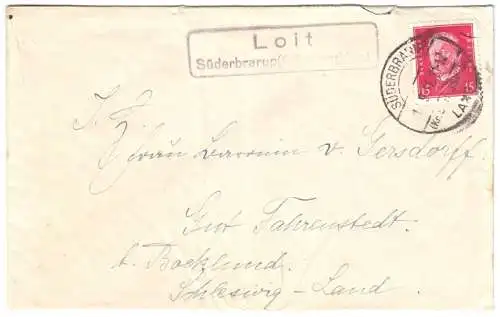 Loit
Süderbrarup
SÜDERBRARUP
15 15
I. H.
Frau Baronin v. Gersdorff.
Gut Fahrenstedt.
b. Böcklund.
Schleswig-Land.